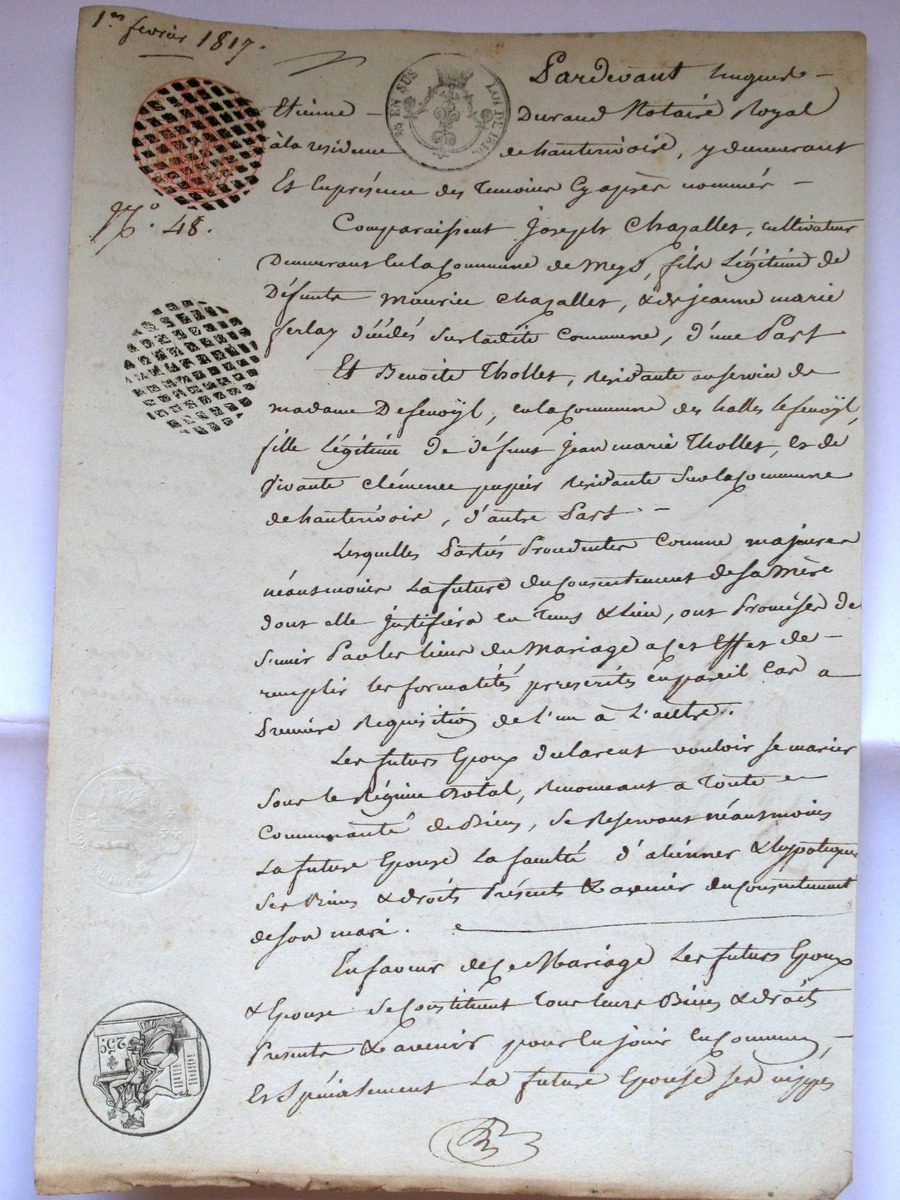 1er fevrier 1817.
Pardevant hugues
Etienne Durand Notaire Royal
à la residence de hauterivoire, y demeurant
Et En presence des temoins Cy après nommés
N.o 48.
Comparaissent Joseph Chazalles, cultivateur
Demeurant En la Commune de Meys, fils Légitime de
Défunts Maurice Chazalles, & de jeanne marie
ferlay décédés sur ladite Commune, d'une Part
Et Benoite Thollet, residante au service de
madame Desenoÿl, en la Commune des halles Lefenoÿl,
fille Légitime de défunt Jean marie Thollet, et de
vivante Clémence pupier residante sur la Commune
de hauterivoire, d'autre Part
Lesquelles Parties Procedentes comme majeures
néanmoins La future du Consentement de sa Mère
dont elle justifiera en tems & lieu, ont Promises de
S'unir Par les liens du Mariage a Cet Effet de
remplir les formalités prescrites en pareil Cas a
Premiere Requisition de l'un à L'autre.
Les futurs Epoux declarent vouloir se marier
Sous le Régime Dotal, Renonceant a Toute
Communauté de Biens, Se Reservant néanmoins
La future Epouse La faculté d'aliénner & hypotequer
Ses Biens & droits Présents & avenir du Consentement
de son mari.
En faveur de Ce Mariage Les futurs Epoux
& Epouse Se Constituent Tous leurs Biens & droits
Presents & avenir pour En jouir En Commun,
Et Spécialement La future Epouse ses nippes
EN SUS
LOI DE 1816
25c